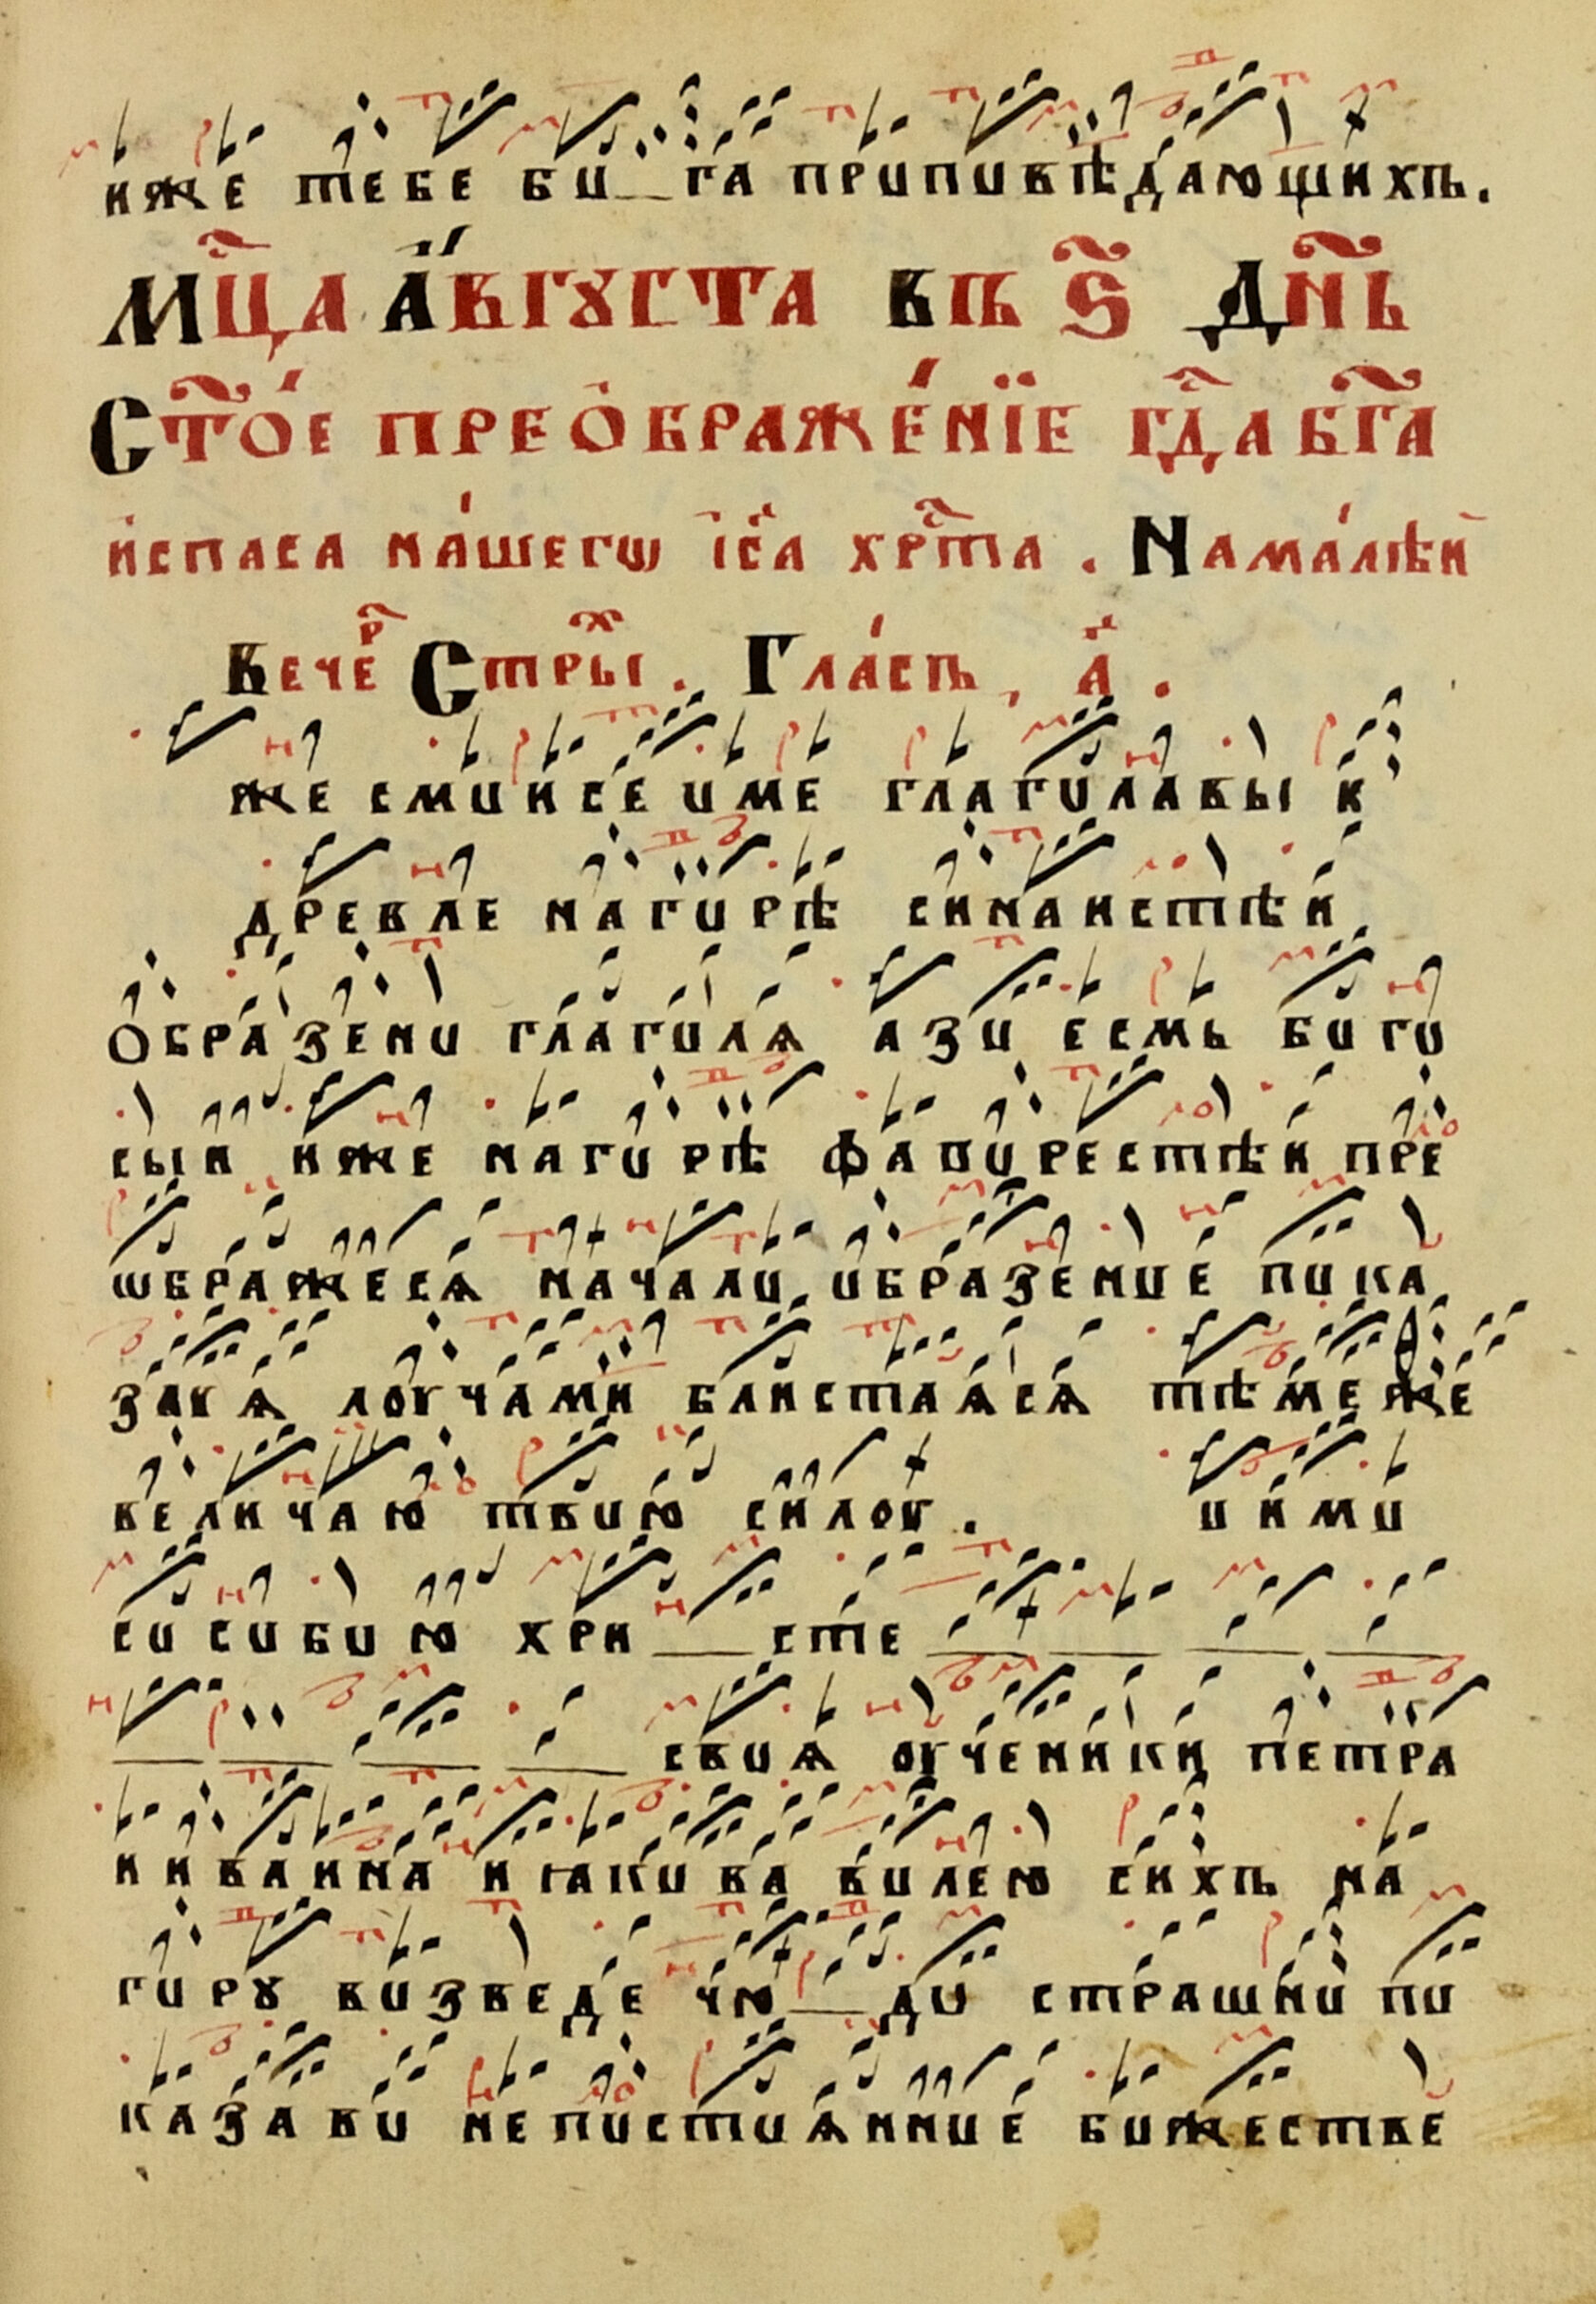 иже тебе бо га проповѣдающихъ.
Мц҃а А҆́вгꙋста въ ѕ҃ дн҃ь
Ст҃о́е преѻбраже́нїе гд҃а бг҃а
и҆спаса на́шегѡ і҆с҃а хрⷭ҇та . Нама́лѣй
Вечеⷬ҇ Стрⷯы . Гла́съ , а҃ .
же смоисеоме глаголавы и
древле нагорѣ синаистѣи
Ѻбразено глаголѧ азо есмь бого
сыи иже нагорѣ фаворестѣи пре
ѡбражесѧ начало ображеное пока
заѹѧ лоучами блистаѧсѧ тѣмеже
величаю твою силоу . оимо
со собою хри сте
своѧ оученики петра
и ивана и ꙗкова волею сихъ на
горꙋ возведе чю до страшно по
казаво непостоѧнное божестве